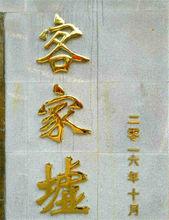 客家墟
二零一六年十月